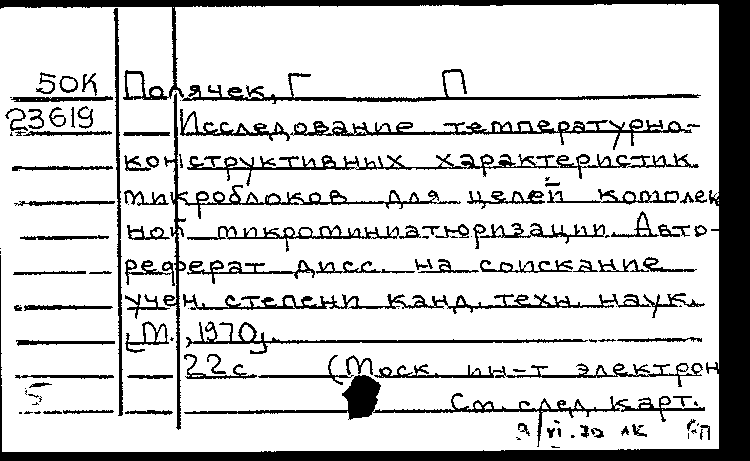 50К Полячек, Г П
23619 Исследование температурно-
конструктивных характеристик
микроблоков для целей комплек
ной микроминиатюризации. Авто-
реферат дисс. на соискание
учен. степени канд. техн. наук.
[М., 1970].
22с (Моск. ин-т электрон
5 См. след. карт.
9/VI.70 ЛК